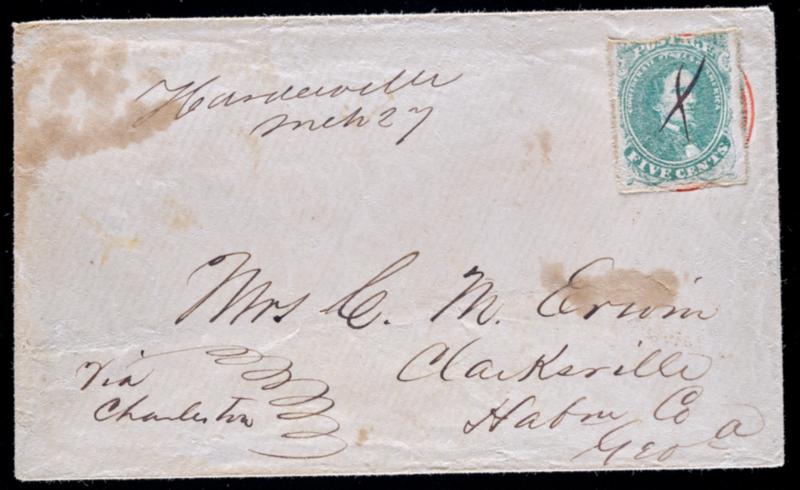 Hardeeville
Mch 27
POSTAGE
CONFEDERATE STATES OF AMERICA
FIVE CENTS
X
Mrs C. M. Erwin
Clarksville
Via
Charleston
Co
Geo a